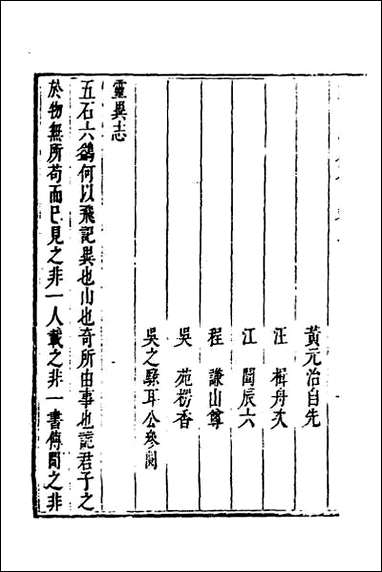 黃元治自先
汪楫舟次
江闓辰六
程謙山尊
吳苑楞香
吳之騄耳公參閱
靈異志
五石六鷁何以飛記異也山也奇所由事也誌君子之
於物無所苟而已見之非一人載之非一書傳聞之非